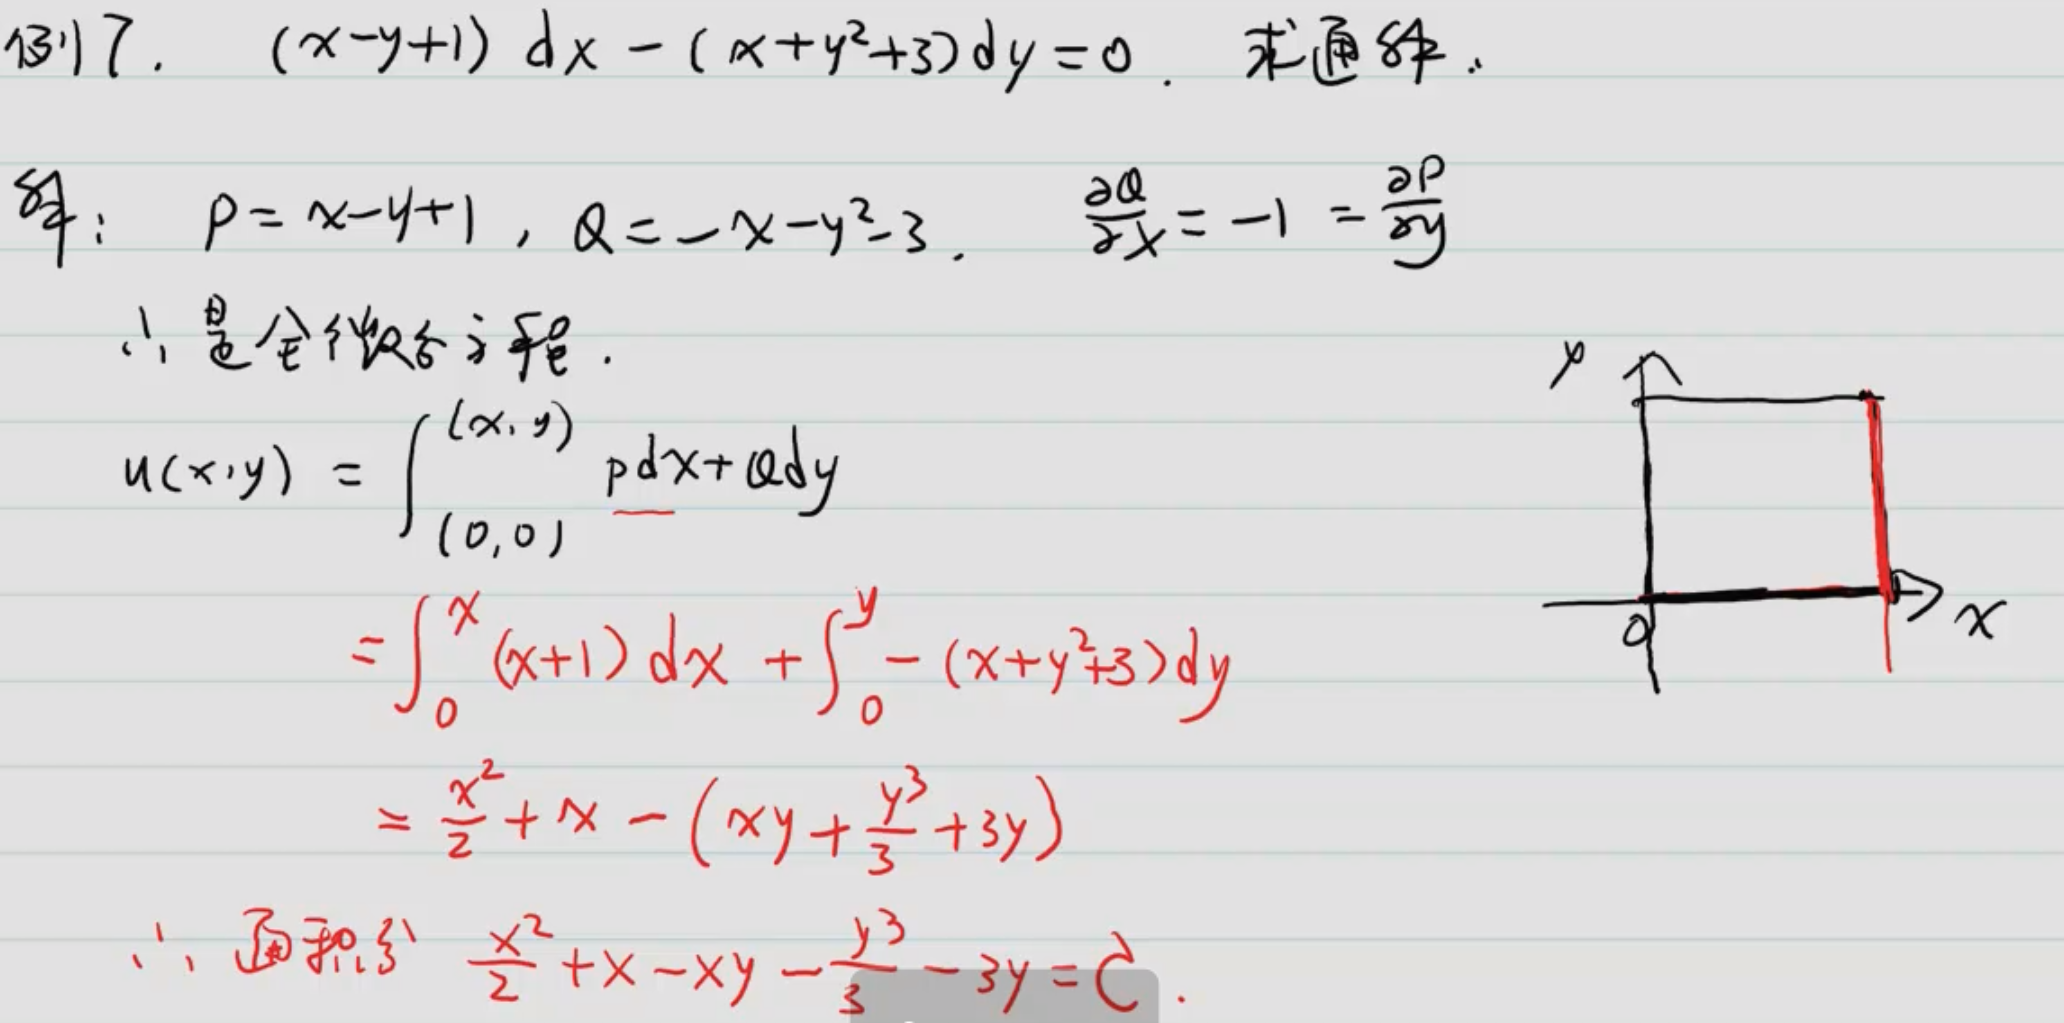 例7. (x-y+1) dx - (x+y²+3)dy = 0. 求通解.
解: P = x-y+1, Q = -x-y²-3. ∂Q/∂x = -1 = ∂P/∂y
∴ 是全微分方程.
u(x,y) = ∫_(0,0)^(x,y) pdx+Qdy
= ∫_0^x (x+1) dx + ∫_0^y -(x+y²+3)dy
= x²/2 + x - (xy + y³/3 + 3y)
∴ 通积分 x²/2 + x - xy - y³/3 - 3y = C.
y
0
x